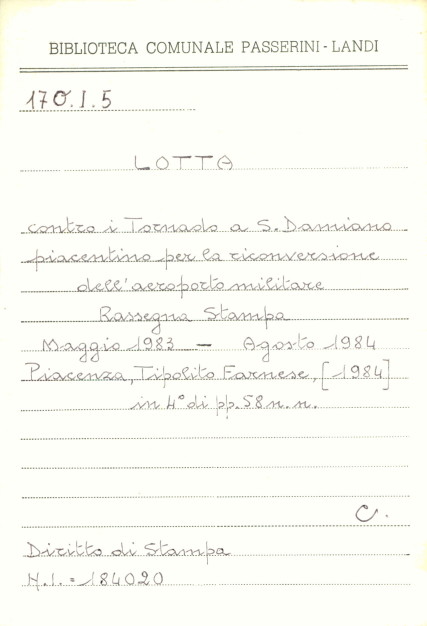 BIBLIOTECA COMUNALE PASSERINI-LANDI
170.I.5
LOTTA
contro i Tornado a S. Damiano
piacentino per la riconversione
dell'aeroporto militare
Rassegna Stampa
Maggio 1983 — Agosto 1984
Piacenza, Tipolito Farnese, [1984]
in 4° di pp. 58 n.n.
C.
Diritto di Stampa
N.I. = 184020